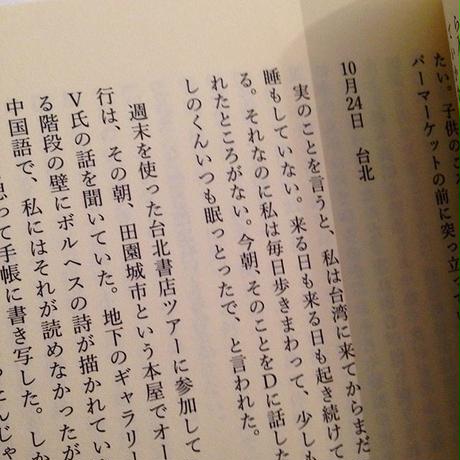 たい。子供のころ
パーマーケットの前に突っ立ってい
10月24日　台北
実のことを言うと、私は台湾に来てからまだ
睡もしていない。来る日も来る日も起き続けて
る。それなのに私は毎日歩きまわって、少しも
れたところがない。今朝、そのことをDに話した
しのくんいつも眠っとったで、と言われた。
週末を使った台北書店ツアーに参加して
行は、その朝、田園城市という本屋でオー
V氏の話を聞いていた。地下のギャラリー
る階段の壁にボルヘスの詩が描かれてい
中国語で、私にはそれが読めなかったが
思って手帳に書き写した。しか